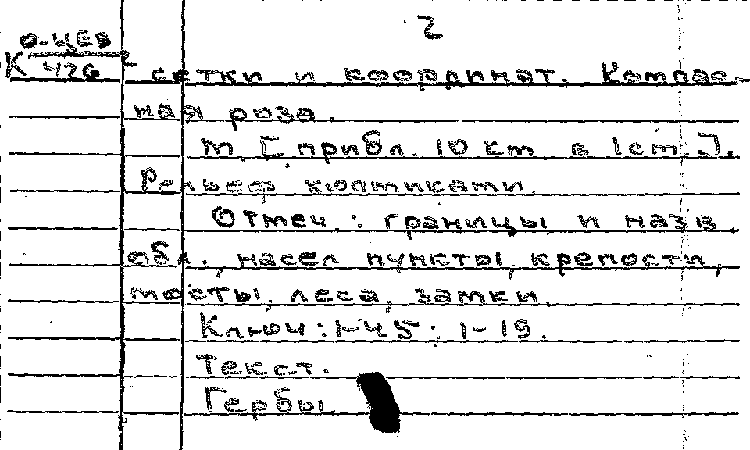 2
О-ЦЕВ
К 2
426
сетки и координат. Компас-
ная роза.
М. [прибл. 10 км в 1 см.].
Рельеф
Отмеч.: границы и назв.
обл., насел пункты, крепости,
мосты, леса, замки.
Ключ: 1-45; 1-19.
Текст.
Гербы.